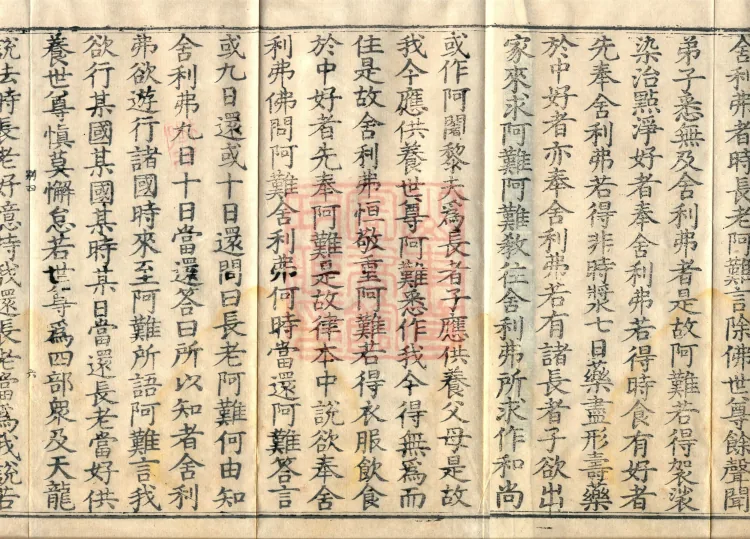 舍利弗者時長老阿難言除佛世尊餘聲聞
弟子悉無及舍利弗者是故阿難若得袈裟
染治點淨好者奉舍利弗若得時食有好者
先奉舍利弗若得非時漿七日藥盡形壽藥
於中好者亦奉舍利弗若有諸長者子欲出
家來求阿難阿難教住舍利弗所求作和尚
或作阿闍黎夫為長者子應供養父母是故
我今應供養世尊阿難悉作我今得無為而
住是故舍利弗恒敬重阿難若得衣服飲食
於中好者先奉阿難是故律本中說欲奉舍
利弗佛問阿難舍利弗何時當還阿難答言
或九日還或十日還問曰長老阿難何由知
舍利弗九日十日當還答曰所以知者舍利
弗欲遊行諸國時來至阿難所語阿難言我
欲行某國某國某時某日當還長老當好供
養世尊慎莫懈怠若世尊為四部眾及天龍
說去時長老好意待我還長老當為我說若
六